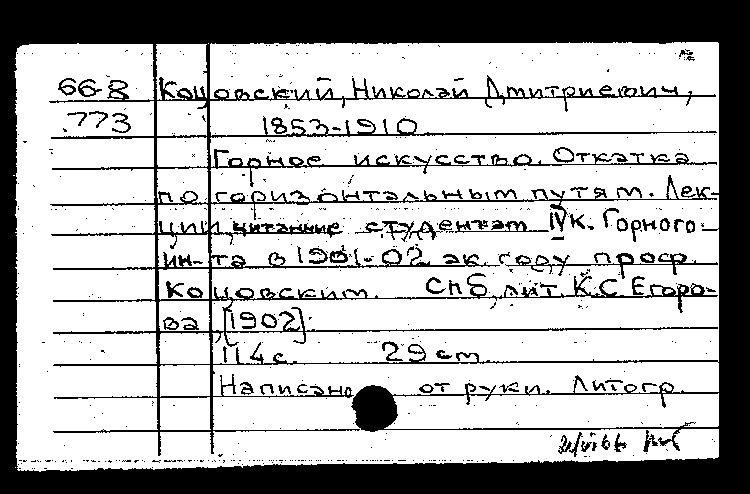 66-8 Коцовский, Николай Дмитриевич,
.773 1853-1910.
Горное искусство. Откатка
по горизонтальным путям. Лек-
ции, читанные студентам IV к. Горного
ин-та в 1901-02 ак. году проф.
Коцовским. Спб, лит. К.С. Егоро-
ва, [1902].
114 с. 29 см.
Написано от руки. Литогр.